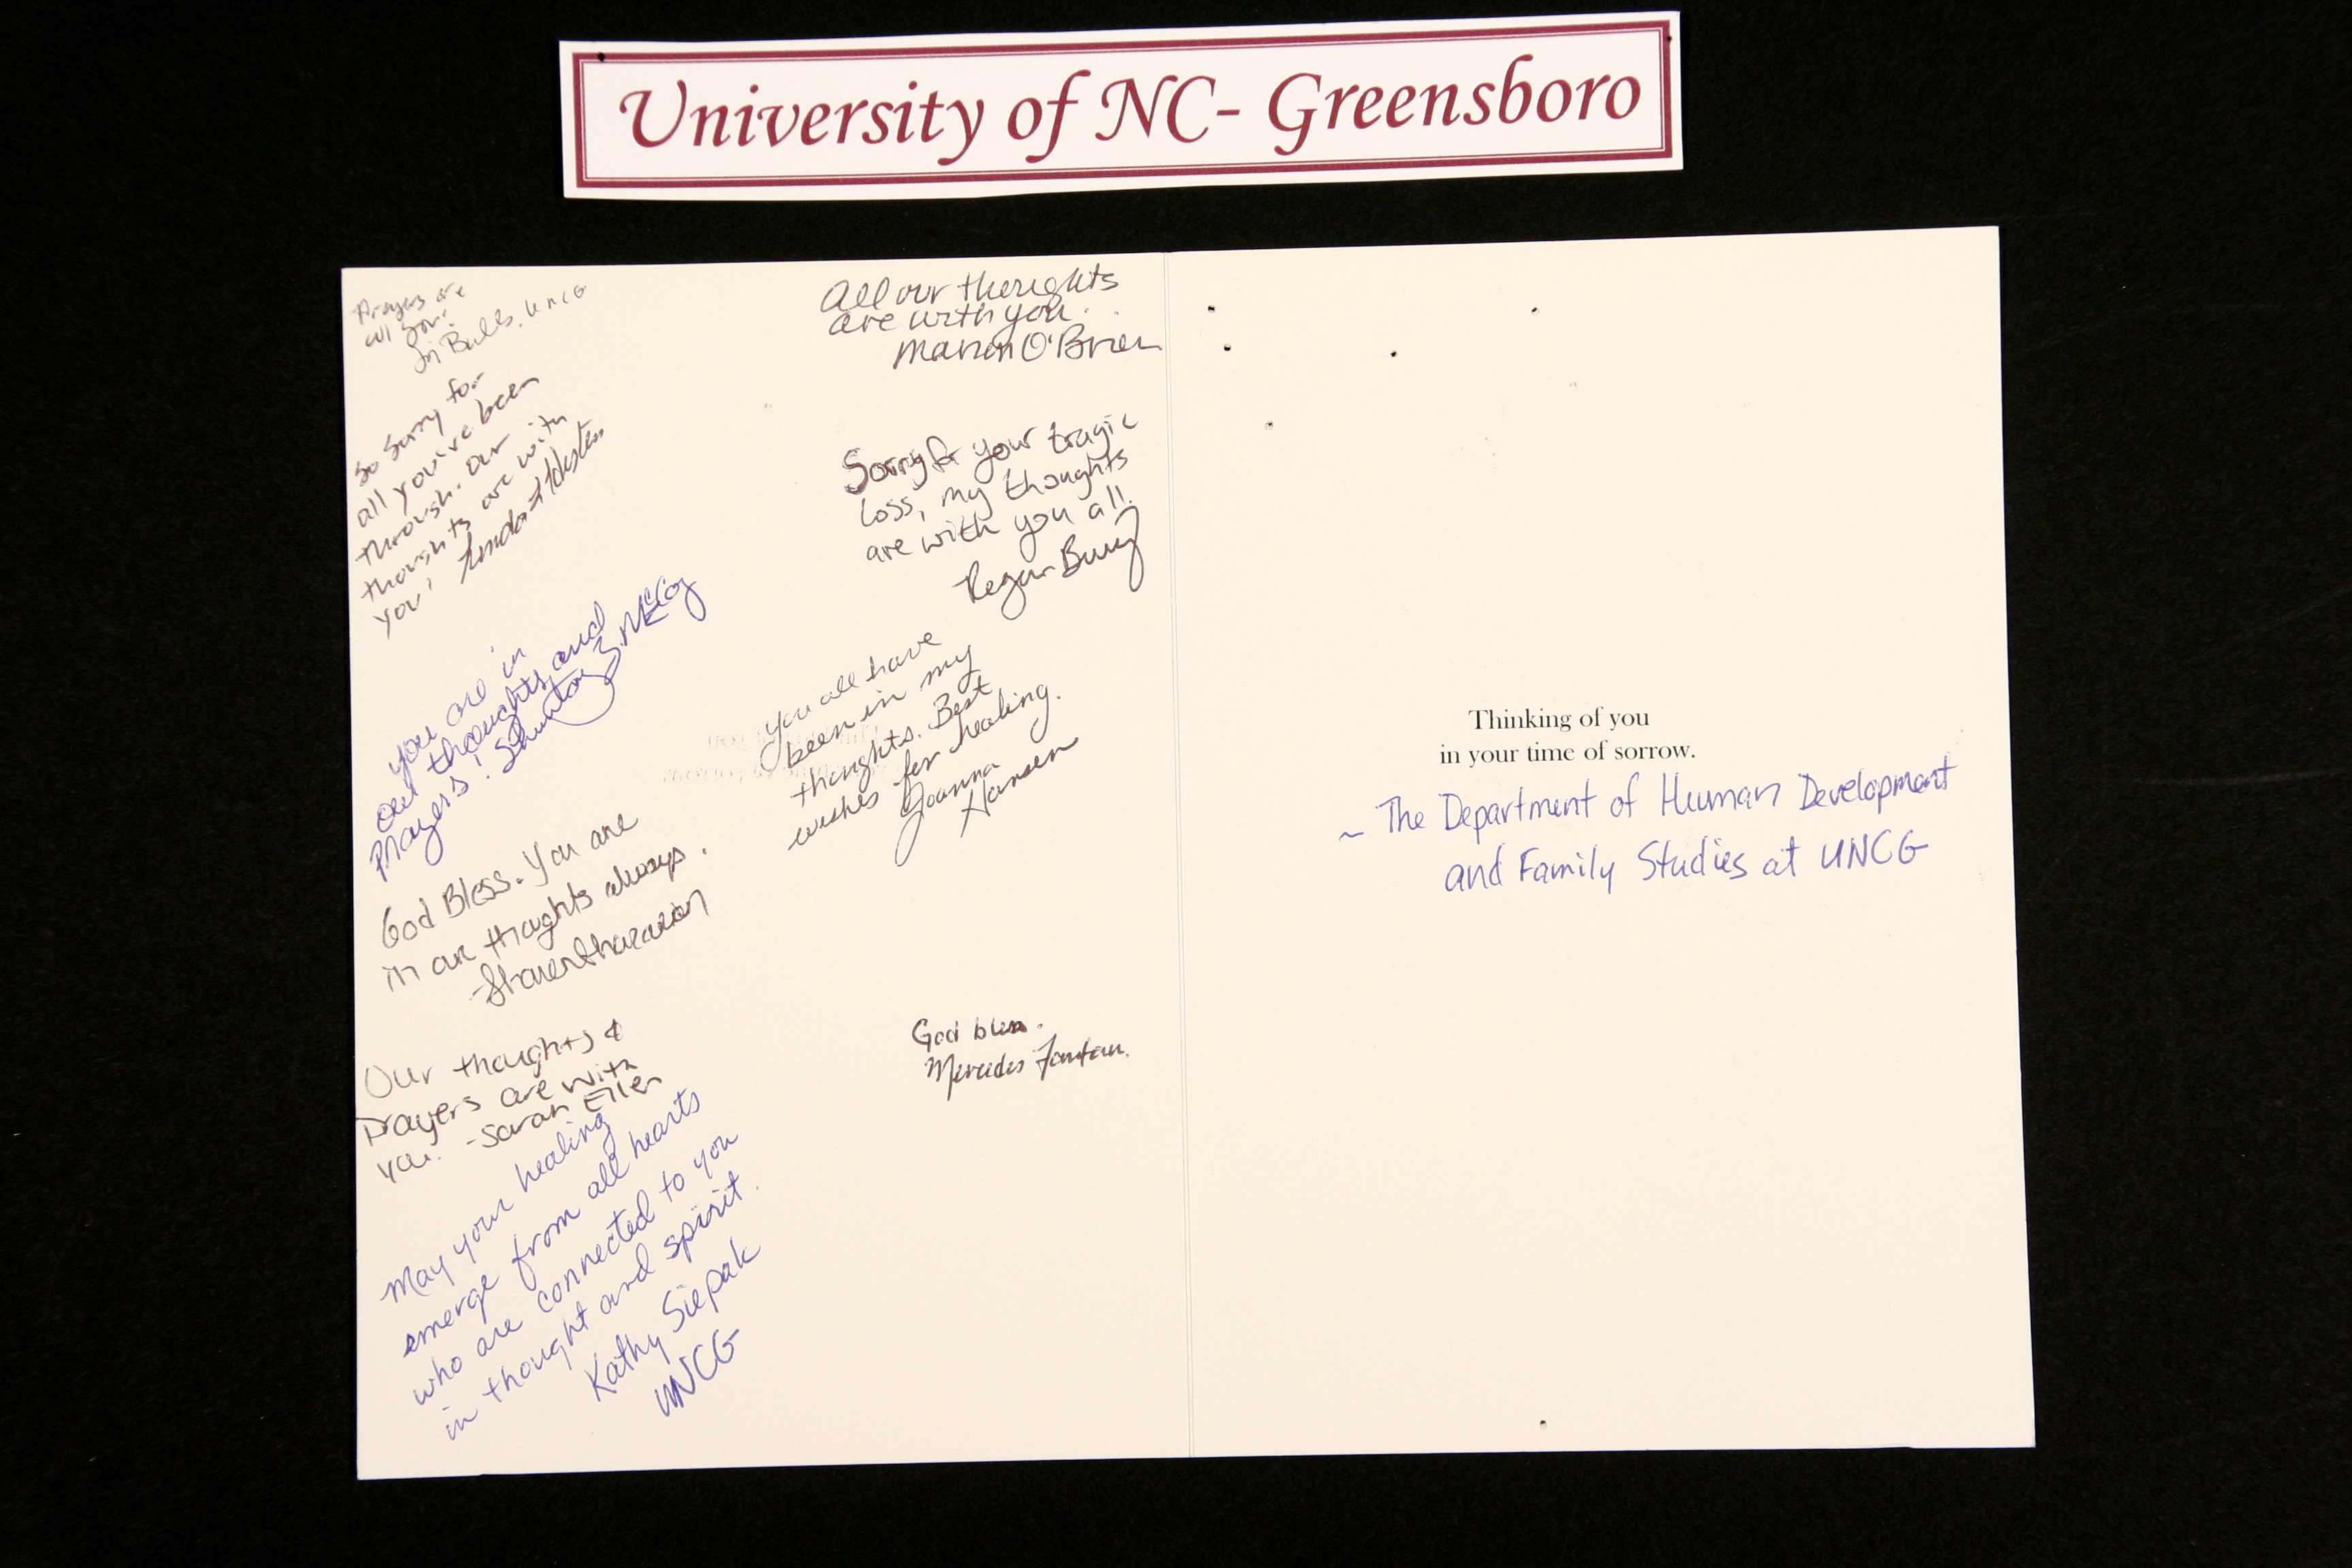 University of NC- Greensboro
Prayers are
w/ you.
UNCG
So sorry for
all you've been
through. Our
thoughts are with
you!
you are in
our thoughts, and
prayers!
McCoy
God Bless. You are
in our thoughts always.
Our thoughts &
prayers are with
you. -Sarah Ellen
May your healing
emerge from all hearts
who are connected to you
in thought and spirit.
Kathy Siepak
UNCG
All our thoughts
are with you.
Marion O'Brien
Sorry for your tragic
loss, my thoughts
are with you all.
Regan
you all have
been in my
thoughts. Best
wishes for healing.
Joanna
Hansen
God bless.
Mercedes
Thinking of you
in your time of sorrow.
~ The Department of Human Development
and Family Studies at UNCG